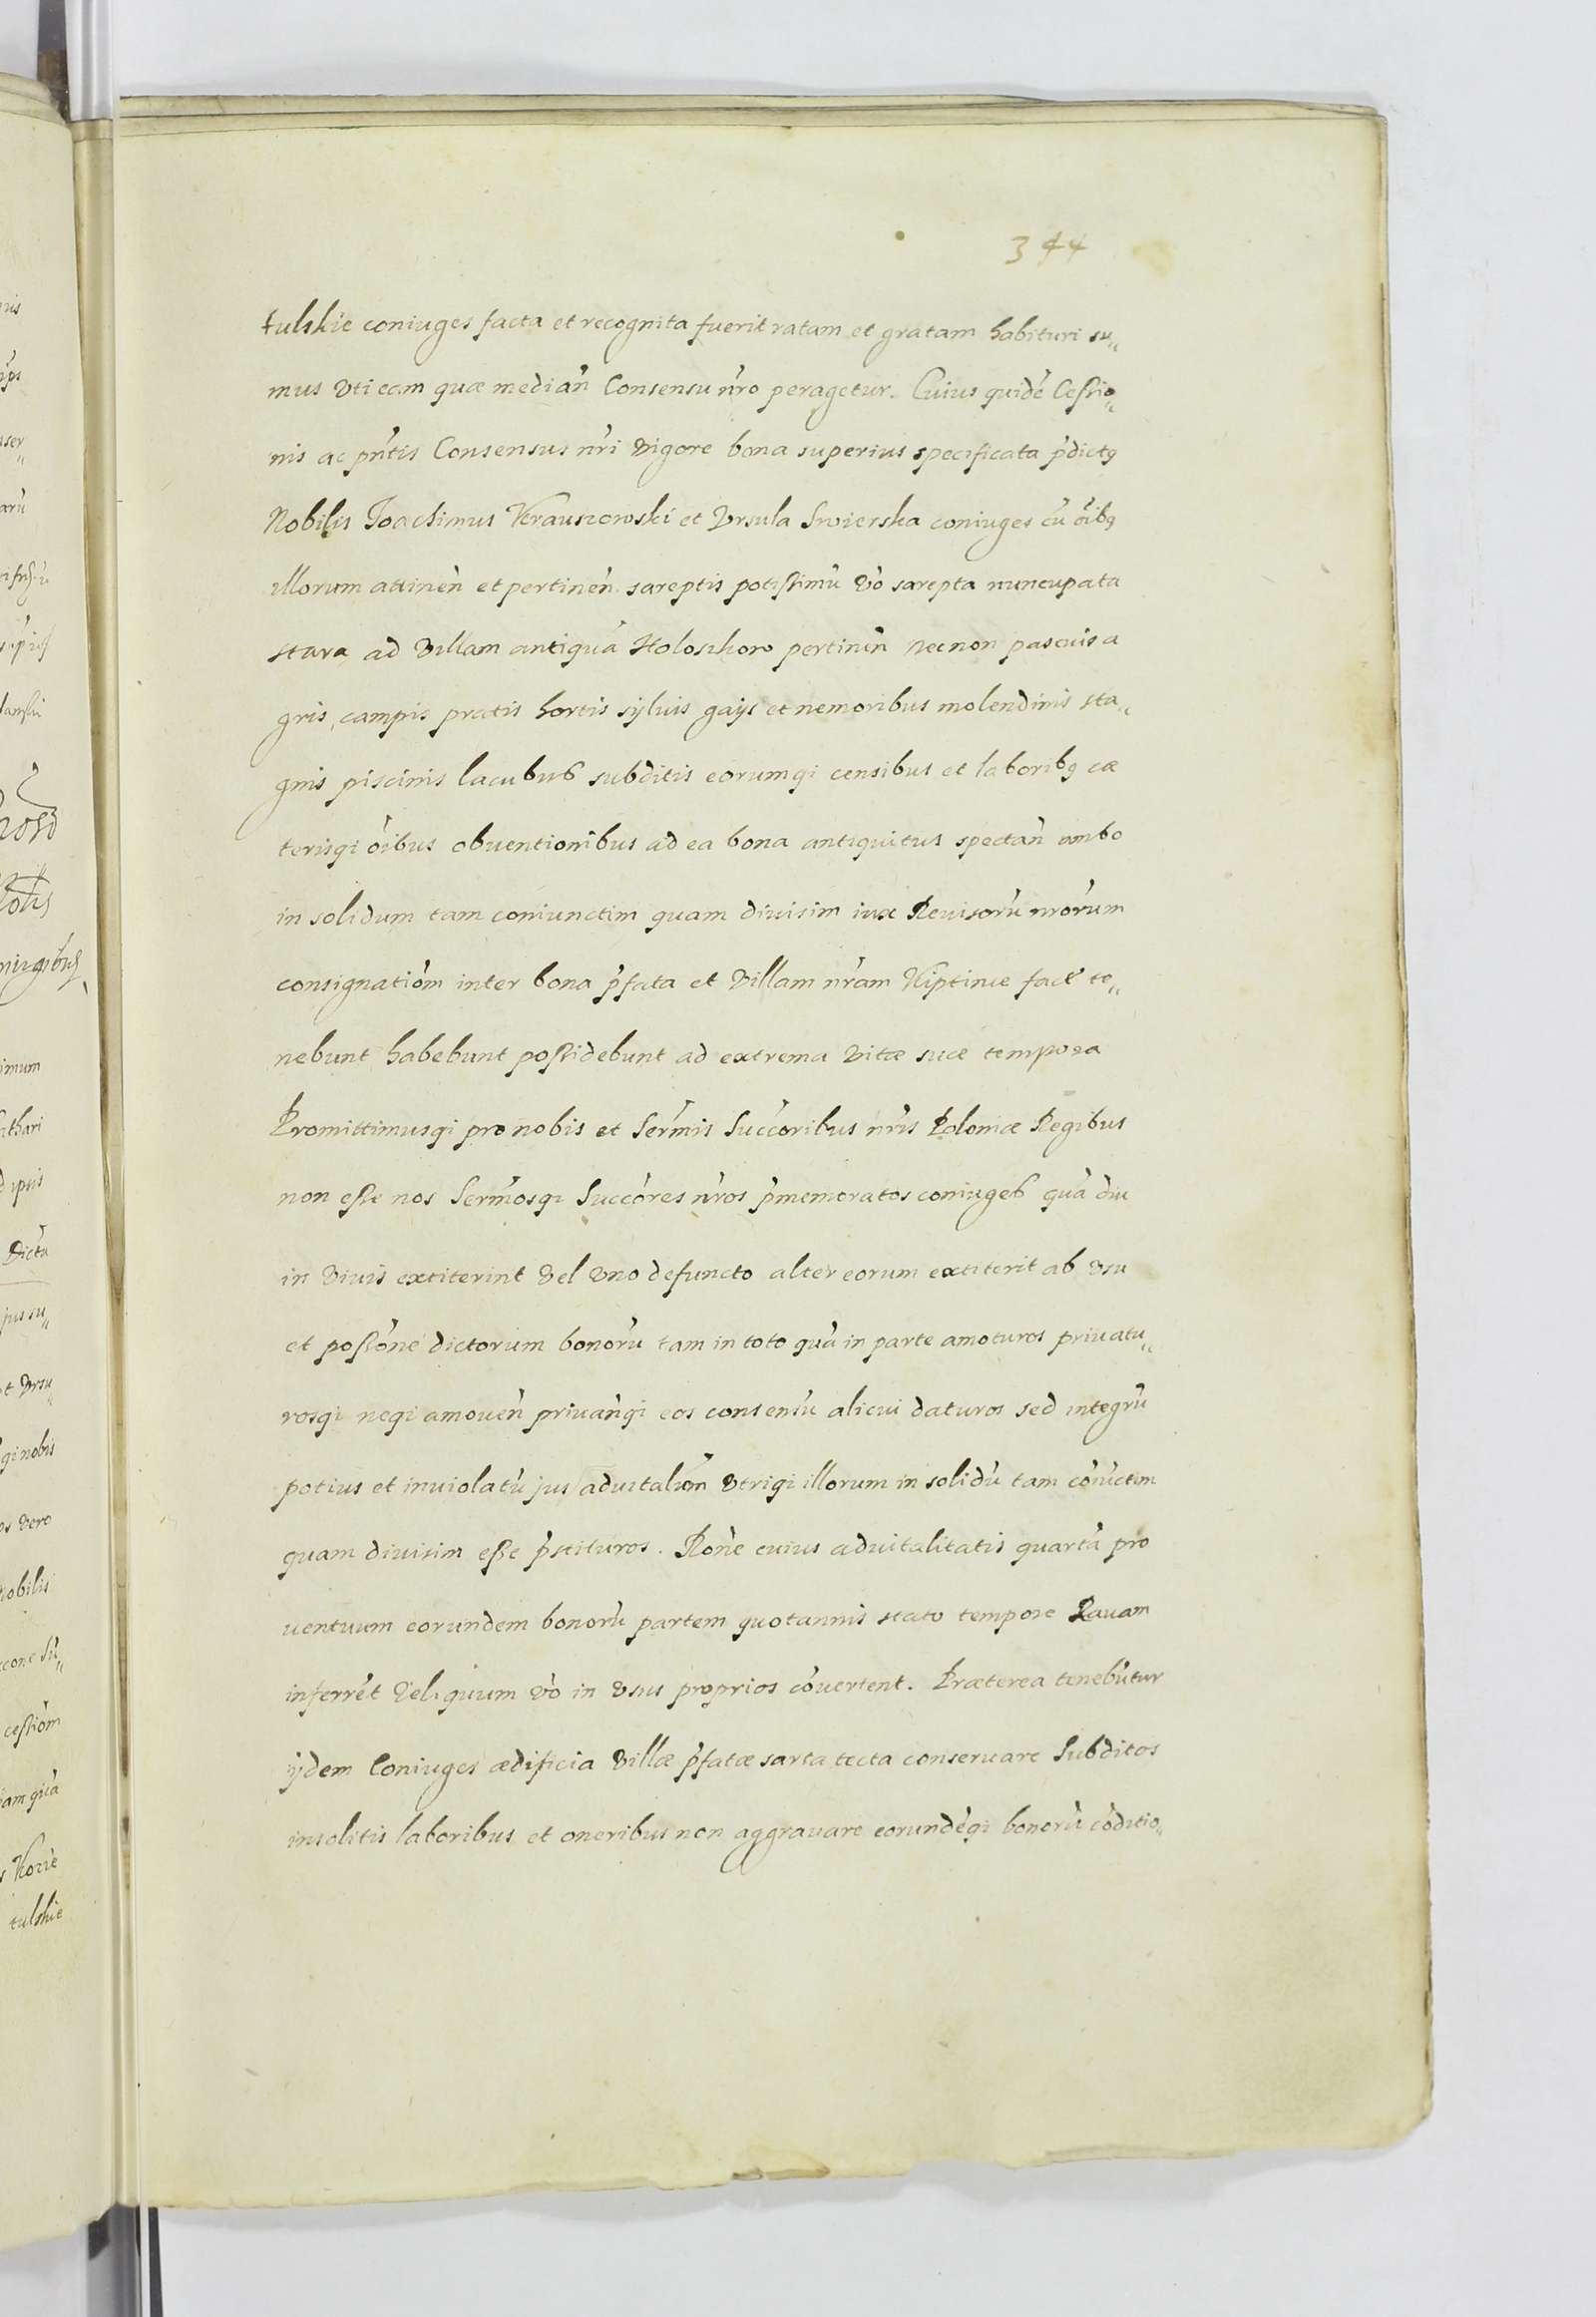 344
tulskie coniuges facta et recognita fuerit ratam et gratam habituri su„
mus vti eam quæ median̄ Consensu nr̄o peragetur. Cuius quidē Cessio„
nis ac pn̄tis Consensus nr̄i vigore bona superius specificata p̄dictꝯ
Nobilis Joachimus Krauszowski et Vrsula Swierska coniuges cū oībꝯ
illorum attinen̄ et pertinen̄ sareptis potissimū vō sarepta nuncupata
stara ad villam antiquā Holoskoro pertinen̄ necnon pascuis a
gris, campis pratis hortis syluis gays et nemoribus molendinis sta„
gnis piscinis lacubus subditis eorumqi censibus et laboribꝯ cæ
terisqi oībus obuentionibus ad ea bona antiquitus spectan̄ ambo
in solidum tam coniunctim quam diuisim iux Reuisorū nrōrum
consignatiōm inter bona p̄fata et villam nr̄am Kiptince fact te„
nebunt habebunt possidebunt ad extrema vitæ suæ tempora
Promittimusqi pro nobis et Serm̄is Succ̄oribus nr̄is Poloniæ Regibus
non esse nos Serm̄osqi Succ̄ores nr̄os p̄memoratos coniuges quā diu
in viuis extiterint vel vno defuncto alter eorum extiterit ab vsu
et possōne dictorum bonorū tam in toto quā in parte amoturos priuatu„
rosqi neqi amouen̄ priuan̄qi eos consensū alicui daturos sed integrū
potius et inuiolatū jus aduitalium vtriqi illorum in solidū tam cōiūctim
quam diuisim esse p̄stituros. Rōne cuius aduitalitatis quartā pro
uentuum eorundem bonorū partem quotannis stato tempore Rauam
inferrēt reliquum vō in vsus proprios cōuertent. Præterea tenebūtur
ijdem Coniuges ædificia villæ p̄fatæ sarta tecta conseruare Subditos
insolitis laboribus et oneribus non aggrauare eorundēqi bonorū cōditio„